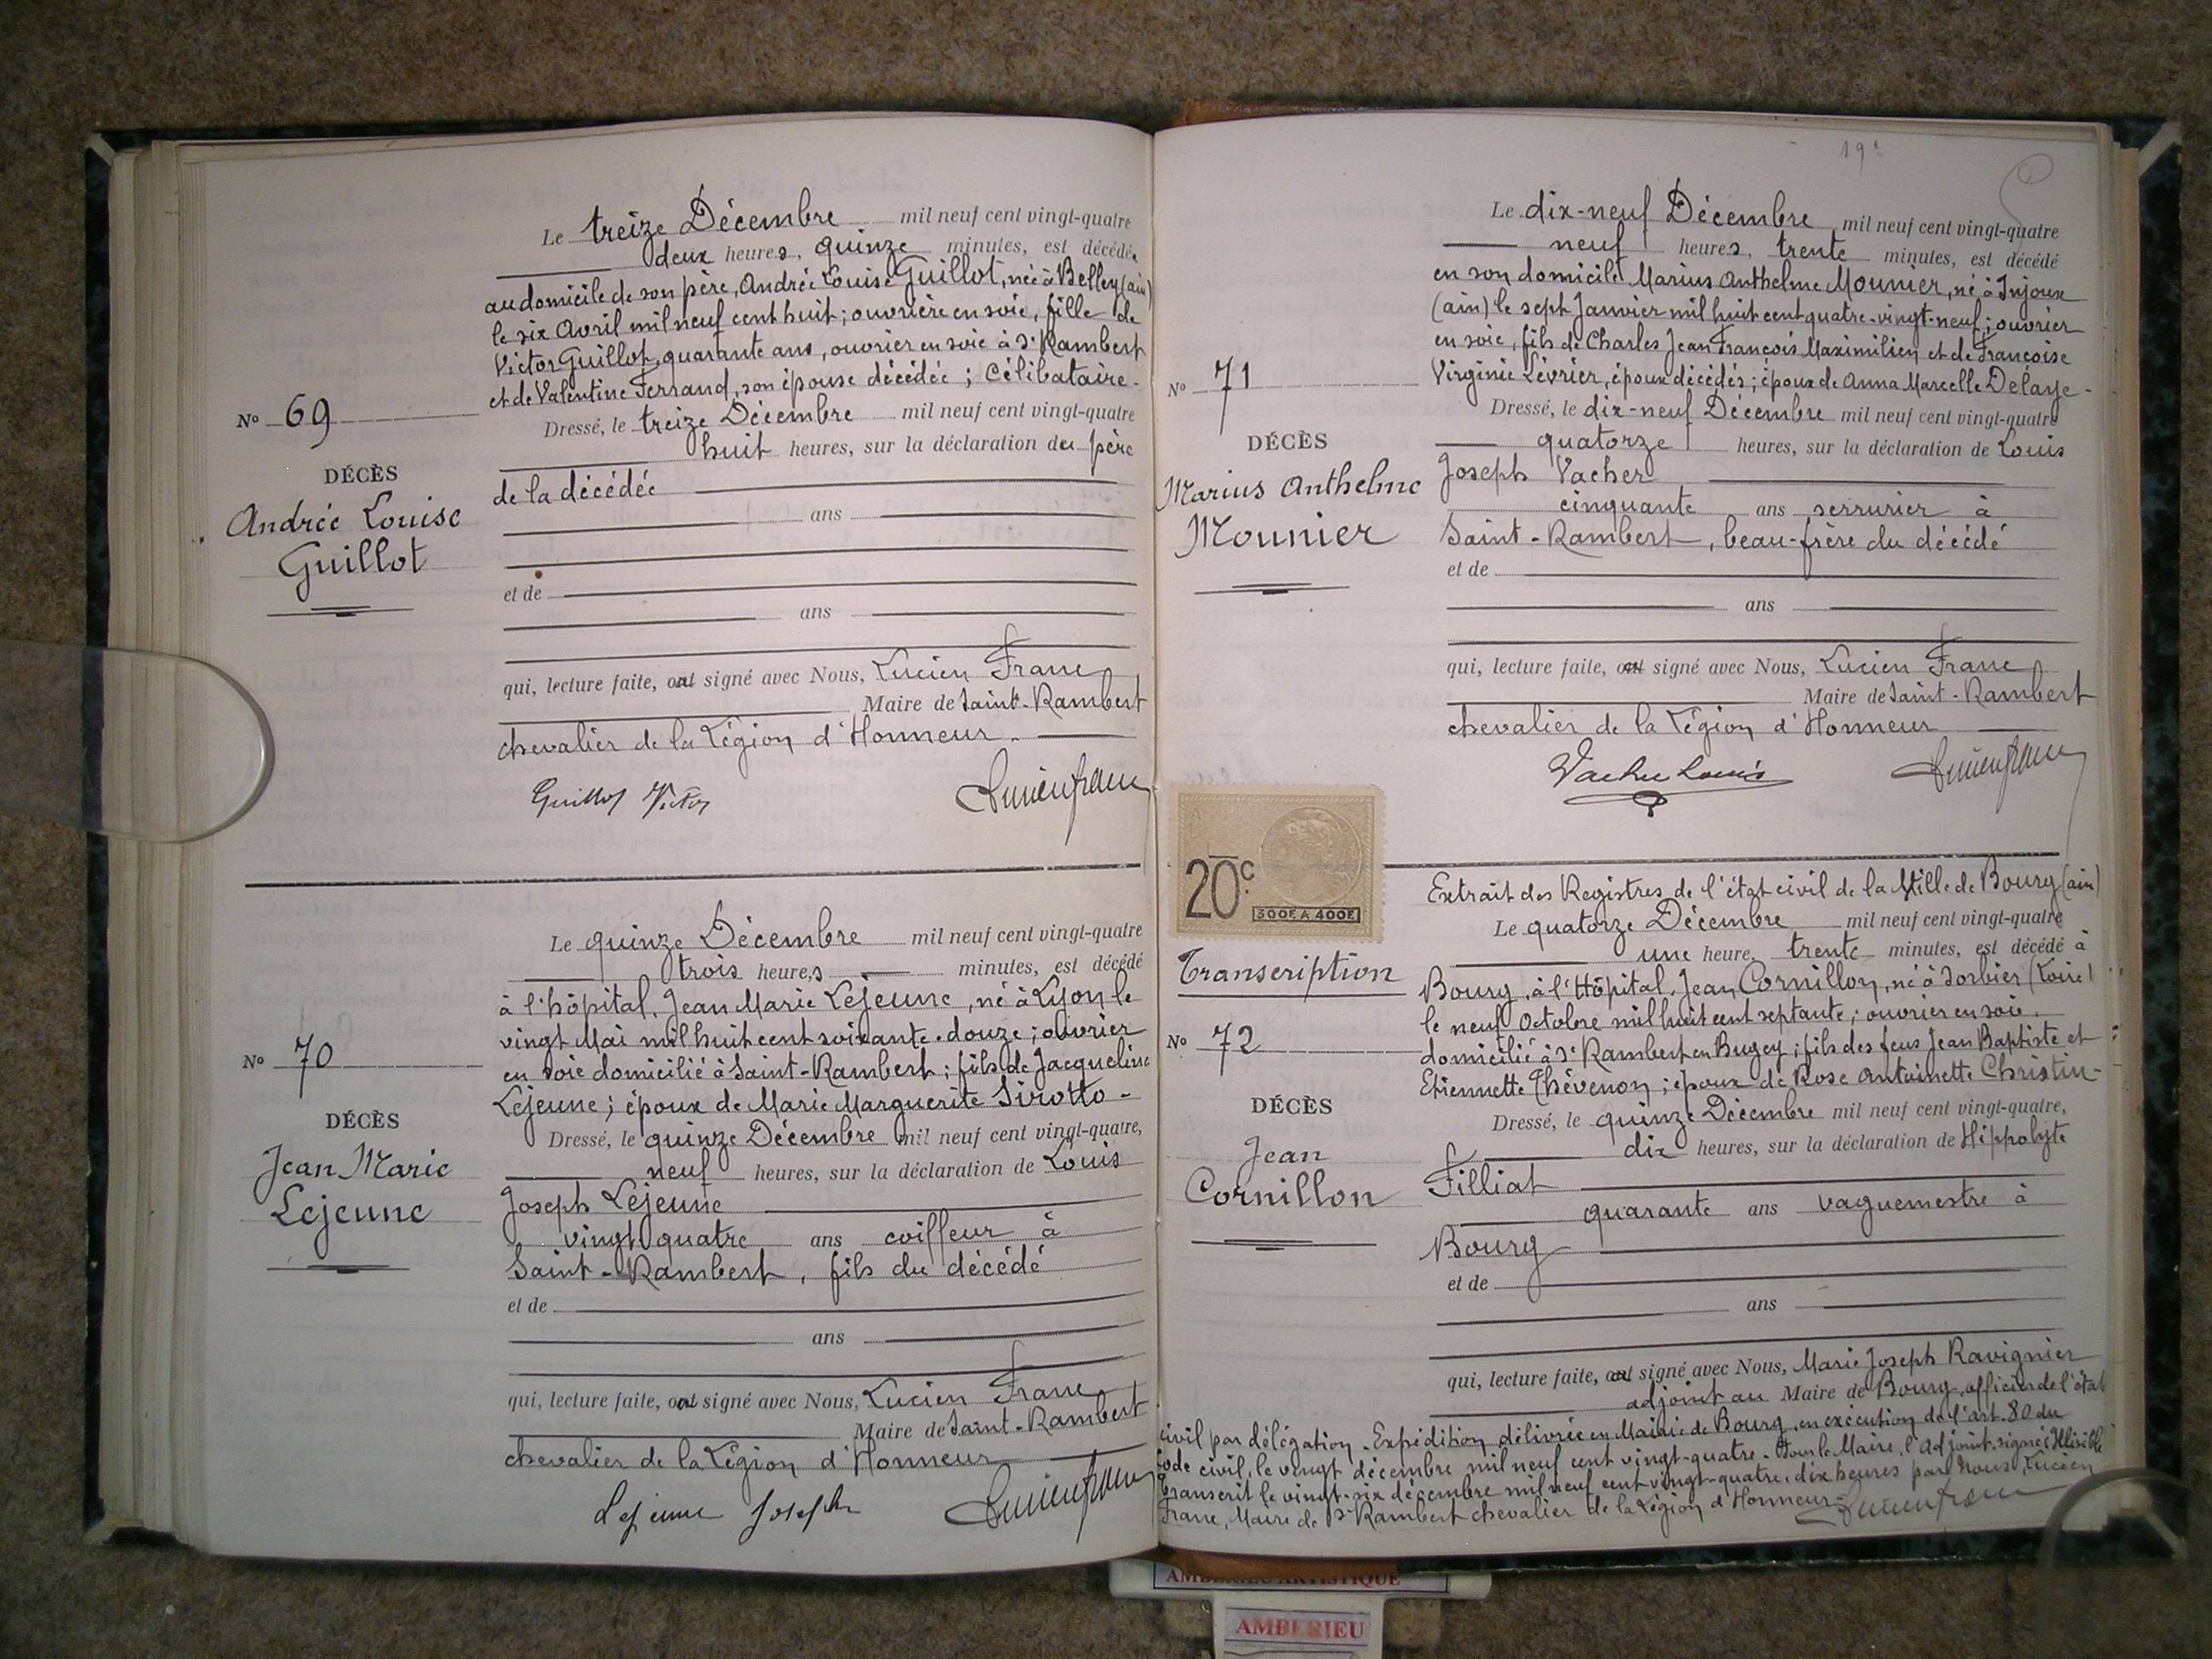 Le treize Décembre mil neuf cent vingt-quatre
deux heures, quinze minutes, est décédée
au domicile de son père, Andrée Louise Guillot, née à Belley (ain)
le six Avril mil neuf cent huit ; ouvrière en soie, fille de
Victor Guillot, quarante ans, ouvrier en soie à St Rambert
et de Valentine Ferrand, son épouse décédée ; Célibataire.
No 69
Dressé, le treize Décembre mil neuf cent vingt-quatre
huit heures, sur la déclaration du père
DÉCÈS
de la décédée
Andrée Louise
Guillot
ans
et de
ans
qui, lecture faite, ont signé avec Nous, Lucien Franc
Maire de Saint-Rambert
chevalier de la Légion d'Honneur.
Guillot Victor Lucien franc
Le quinze Décembre mil neuf cent vingt-quatre
trois heures minutes, est décédé
à l'hôpital, Jean Marie Lejeune, né à Lyon le
vingt Mai mil huit cent soixante-douze ; ouvrier
en soie domicilié à Saint-Rambert ; fils de Jacqueline
Lejeune ; époux de Marie Marguerite Sirotto -
No 70
Dressé, le quinze Décembre mil neuf cent vingt-quatre,
neuf heures, sur la déclaration de Louis
DÉCÈS
Jean Marie
Lejeune
Joseph Lejeune
vingt quatre ans coiffeur à
Saint-Rambert, fils du décédé
et de
ans
qui, lecture faite, ont signé avec Nous, Lucien Franc
Maire de Saint-Rambert
chevalier de la Légion d'Honneur
Lejeune Joseph Lucien franc
191
Le dix-neuf Décembre mil neuf cent vingt-quatre
neuf heures, trente minutes, est décédé
en son domicile Marius Anthelme Mounier, né à Injoux
(ain) le sept Janvier mil huit cent quatre-vingt-neuf ; ouvrier
en soie, fils de Charles Jean François Maximilien et de Françoise
Virginie Lévrier, époux décédés ; époux de Anna Marcelle Delaye -
No 71
Dressé, le dix-neuf Décembre mil neuf cent vingt-quatre
quatorze heures, sur la déclaration de Louis
DÉCÈS
Marius Anthelme
Mounier
Joseph Vacher
cinquante ans serrurier à
Saint-Rambert, beau-frère du décédé
et de
ans
qui, lecture faite, ont signé avec Nous, Lucien Franc
Maire de Saint-Rambert
chevalier de la Légion d'Honneur
Vacher Louis Lucien franc
20c
300F A 400F
Extrait des Registres de l'état civil de la Ville de Bourg (ain)
Le quatorze Décembre mil neuf cent vingt-quatre
une heure, trente minutes, est décédé à
Transcription
Bourg, à l'Hôpital, Jean Cornillon, né à Sorbier (Loire)
le neuf Octobre mil huit cent septante ; ouvrier en soie.
domicilié à St Rambert en Bugey ; fils des feus Jean Baptiste et
Etiennette Thévenon ; époux de Rose Antoinette Christin -
No 72
Dressé, le quinze Décembre mil neuf cent vingt-quatre,
dix heures, sur la déclaration de Hippolyte
DÉCÈS
Jean
Cornillon
Filliat
quarante ans vaguemestre à
Bourg
et de
ans
qui, lecture faite, ont signé avec Nous, Marie Joseph Ravignier
adjoint au Maire de Bourg, officier de l'état
civil par délégation. Expédition délivrée en Mairie de Bourg, en exécution de l'art. 80 du
code civil, le vingt décembre mil neuf cent vingt-quatre. Pour le Maire, l'Adjoint. signé : Illisible
Transcrit le vingt-six décembre mil neuf cent vingt-quatre, dix heures par Nous, Lucien
Franc, Maire de St Rambert chevalier de la Légion d'Honneur. Lucien franc
AMBERIEU ARTISTIQUE
AMBERIEU